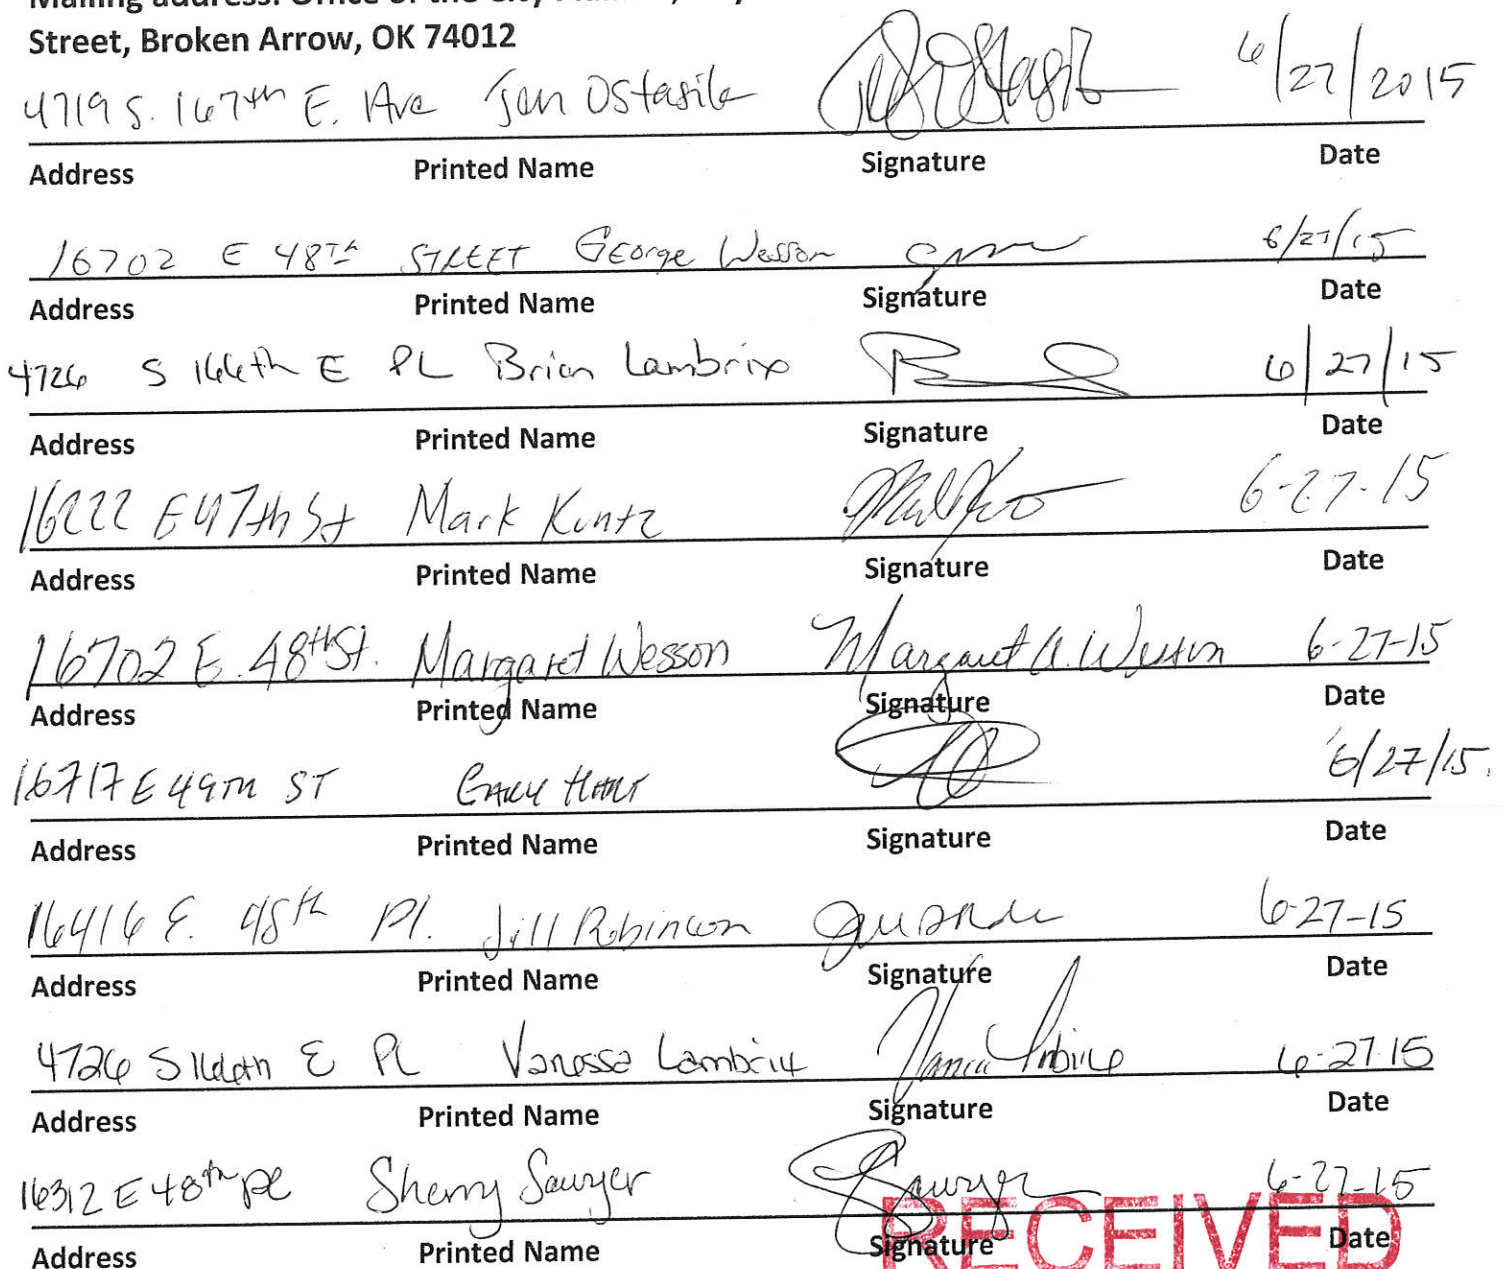 Street, Broken Arrow, OK 74012
4719 S. 167th E. Ave Jen Ostasik 6/27/2015
Address Printed Name Signature Date
16702 E 48TH STREET George Wesson 6/27/15
Address Printed Name Signature Date
4726 S 166th E PL Brian Lambrix 6/27/15
Address Printed Name Signature Date
16222 E 47th St Mark Kuntz 6-27-15
Address Printed Name Signature Date
16702 E. 48th St. Margaret Wesson Margaret A. Wesson 6-27-15
Address Printed Name Signature Date
16717 E 49TH ST GARY HART 6/27/15.
Address Printed Name Signature Date
16416 E. 48th Pl. Jill Robinson 6-27-15
Address Printed Name Signature Date
4726 S 166th E PL Vanessa Lambrix 6-27-15
Address Printed Name Signature Date
16312 E 48th pl Sherry Sawyer Sawyer 6-27-15
Address Printed Name Signature Date
RECEIVED